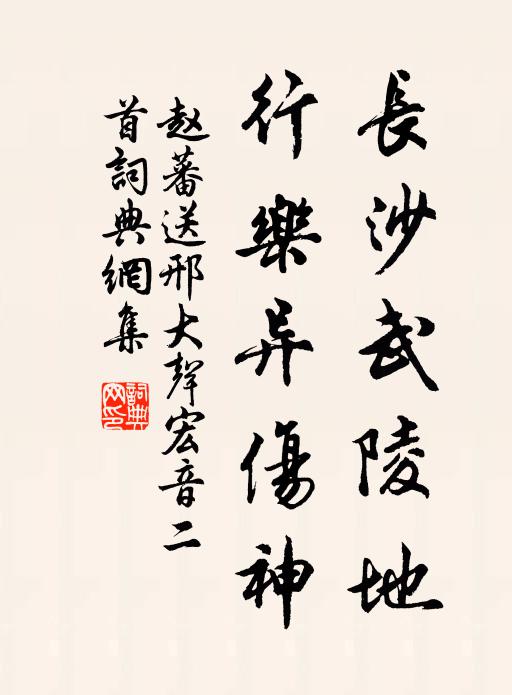 長沙武陵地
行樂异傷神
赵蕃送邢大聲宏音二
首詞典網集
詞典
网印